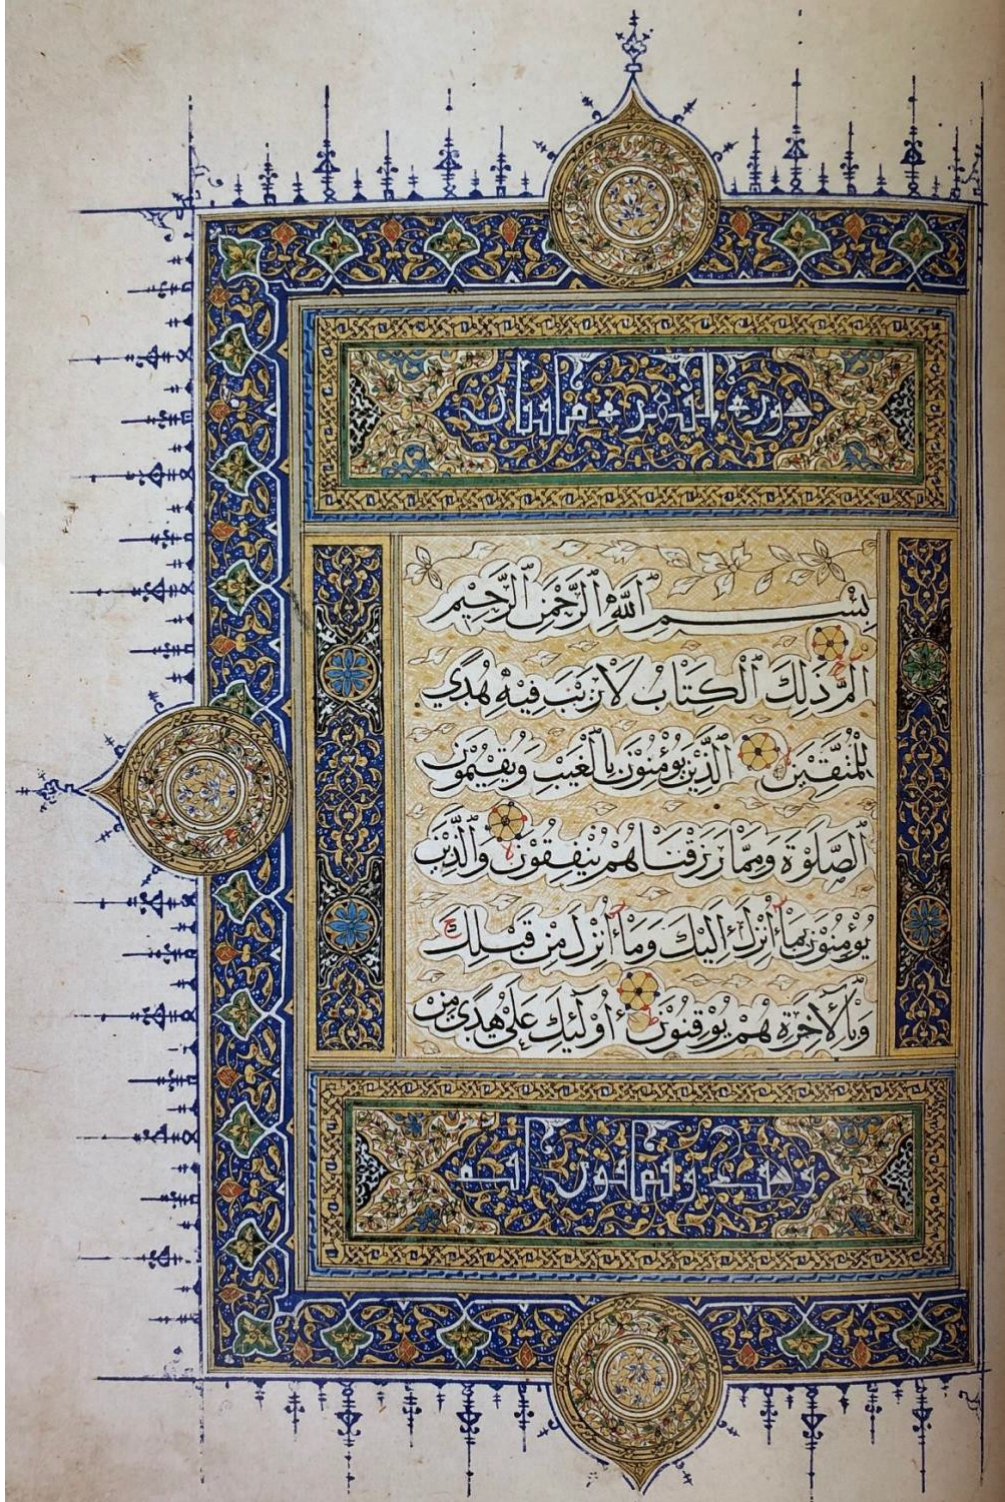 سورة البقرة مائتان
بِسْمِ ٱللَّهِ ٱلرَّحْمَٰنِ ٱلرَّحِيمِ
الٓمّٓ ذَٰلِكَ ٱلْكِتَابُ لَا رَيْبَ فِيهِ هُدًى
لِلْمُتَّقِينَ ٱلَّذِينَ يُؤْمِنُونَ بِٱلْغَيْبِ وَيُقِيمُونَ
ٱلصَّلَوٰةَ وَمِمَّا رَزَقْنَاهُمْ يُنْفِقُونَ وَٱلَّذِينَ
يُؤْمِنُونَ بِمَآ أُنْزِلَ إِلَيْكَ وَمَآ أُنْزِلَ مِنْ قَبْلِكَ ج
وَبِٱلْآخِرَةِ هُمْ يُوقِنُونَ أُولَٰٓئِكَ عَلَىٰ هُدًى مِنْ
وست وثمانون آية